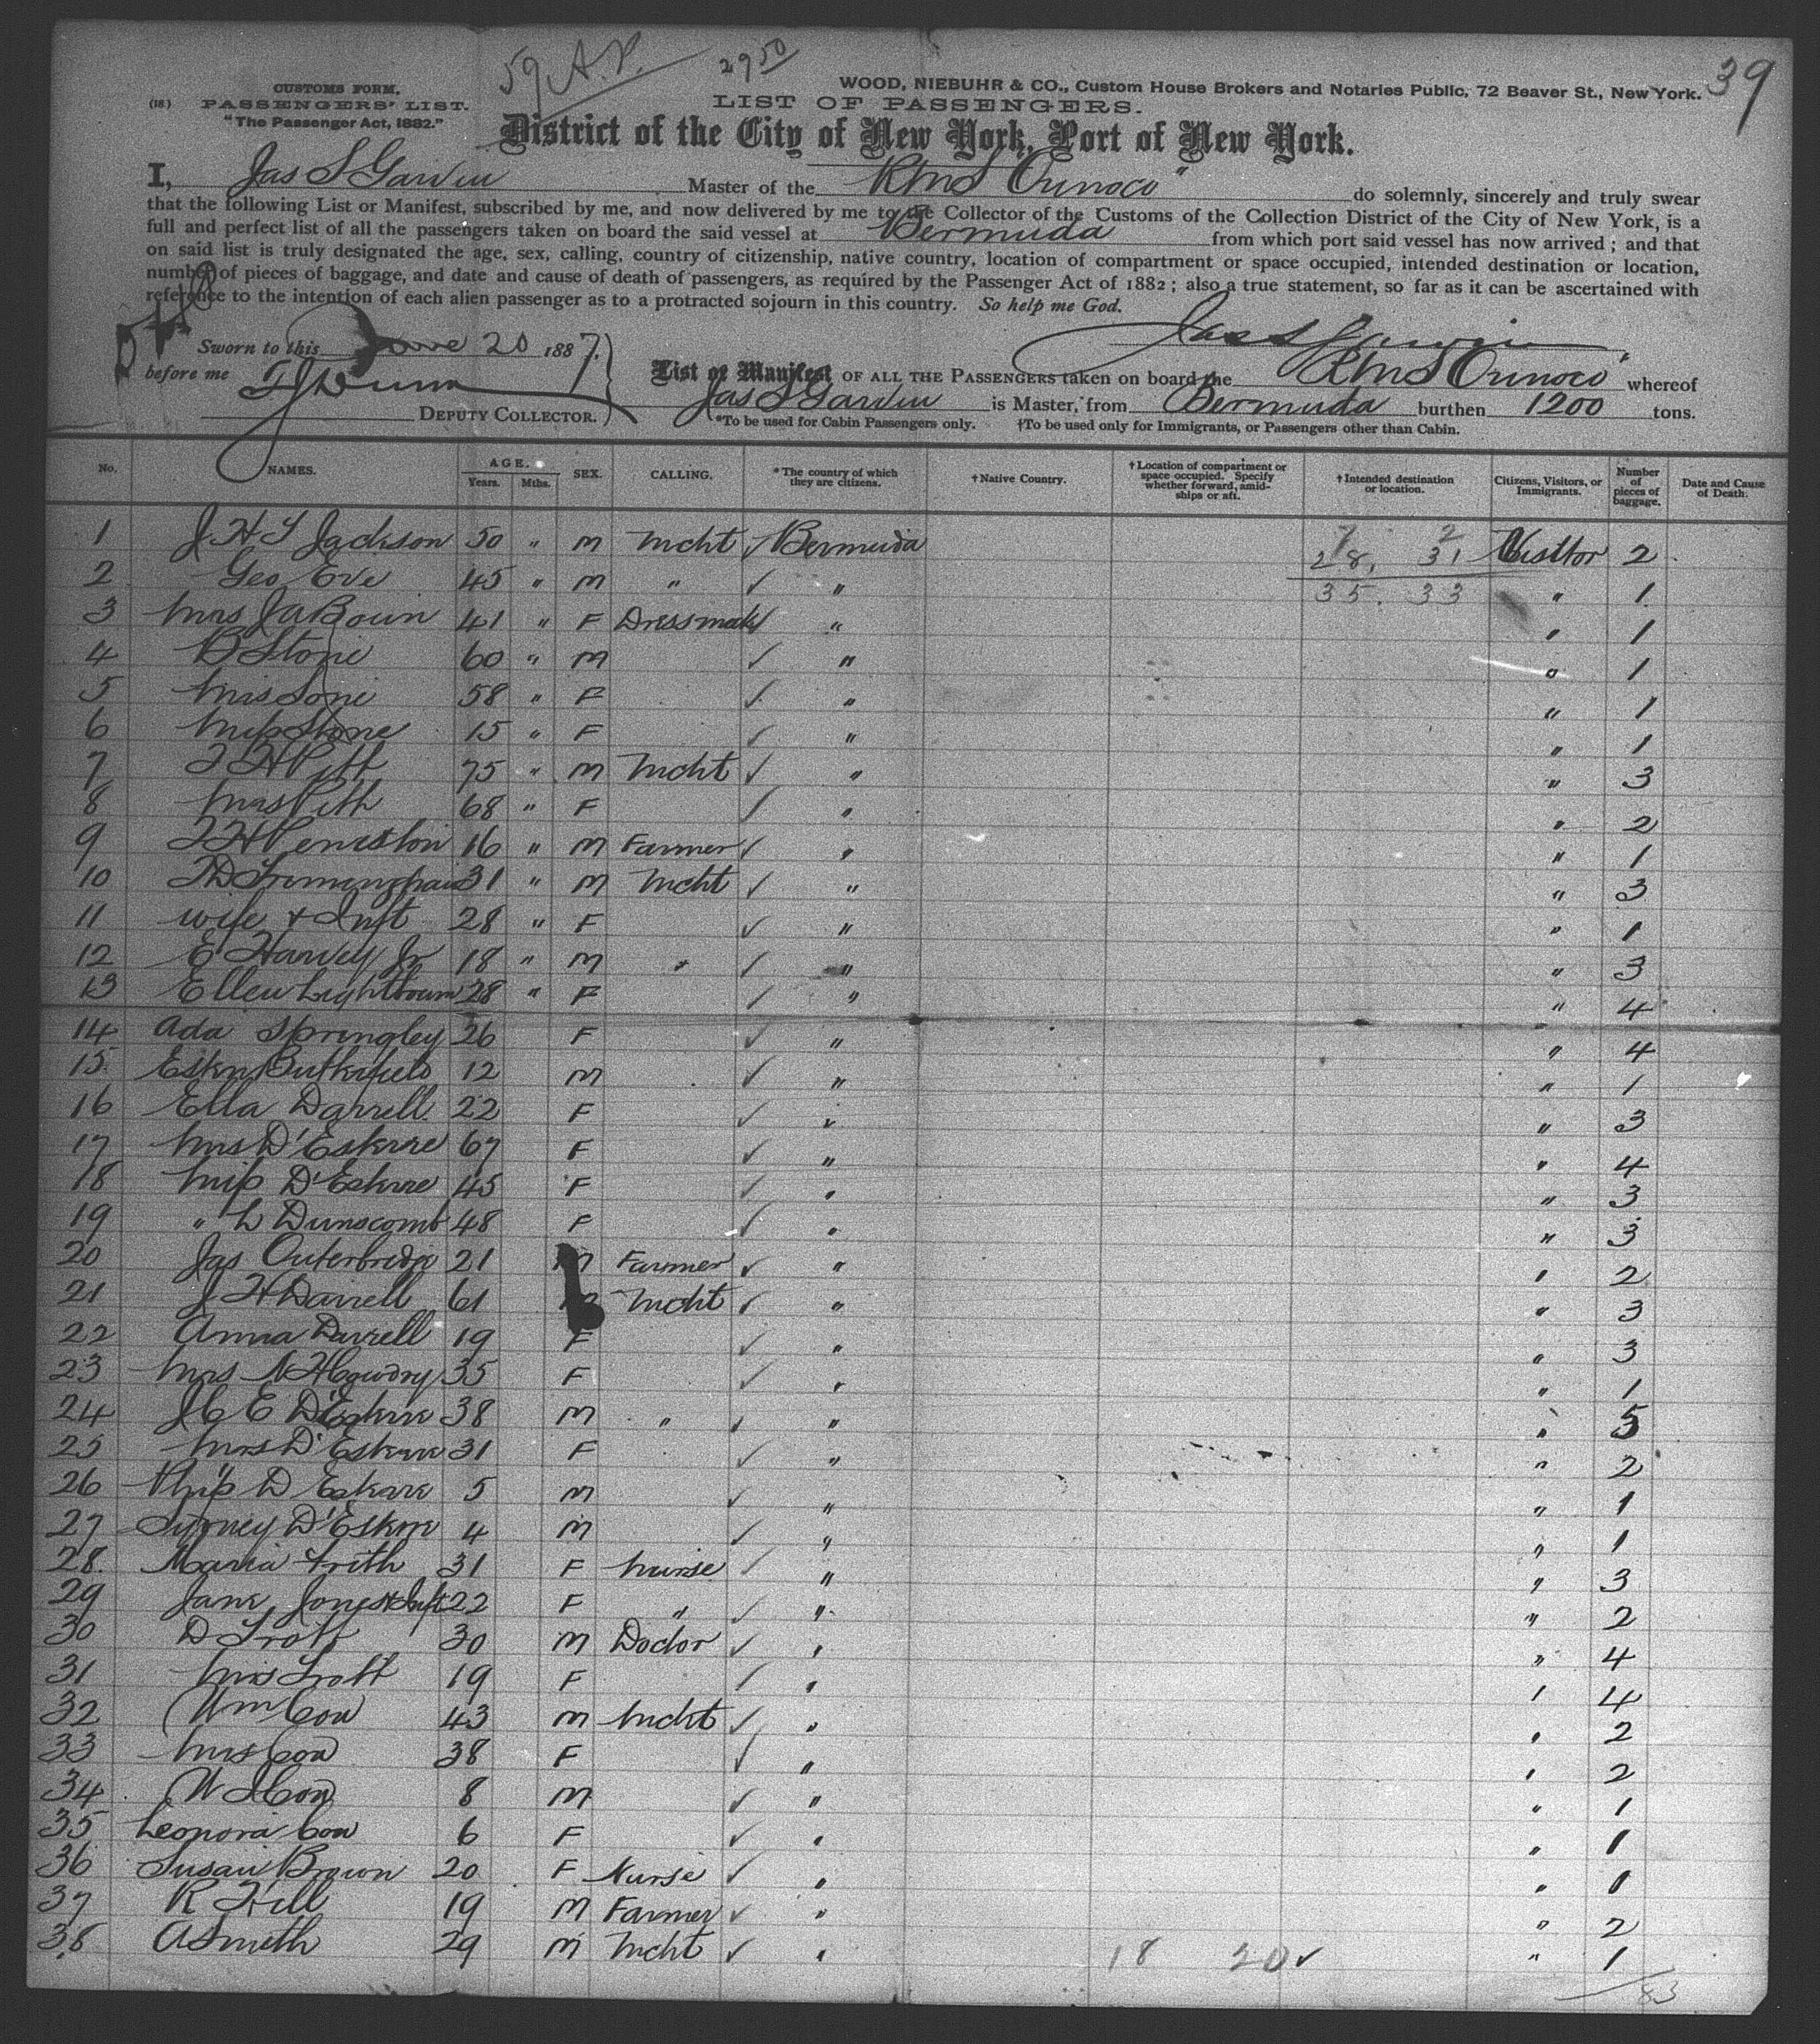 59 A.P. 29 50 39
CUSTOMS FORM.
(18.) PASSENGERS' LIST.
"The Passenger Act, 1882."
WOOD, NIEBUHR & CO., Custom House Brokers and Notaries Public, 72 Beaver St., New York.
LIST OF PASSENGERS.
District of the City of New York, Port of New York.
I, Jas S Garvin Master of the RMS Orinoco" do solemnly, sincerely and truly swear
that the following List or Manifest, subscribed by me, and now delivered by me to the Collector of the Customs of the Collection District of the City of New York, is a
full and perfect list of all the passengers taken on board the said vessel at Bermuda from which port said vessel has now arrived; and that
on said list is truly designated the age, sex, calling, country of citizenship, native country, location of compartment or space occupied, intended destination or location,
number of pieces of baggage, and date and cause of death of passengers, as required by the Passenger Act of 1882; also a true statement, so far as it can be ascertained with
reference to the intention of each alien passenger as to a protracted sojourn in this country. So help me God.
Sworn to this June 20 1887. Jas S Garvin
before me TJ Dunn
DEPUTY COLLECTOR.
List or Manifest OF ALL THE PASSENGERS taken on board the RMS Orinoco whereof
Jas S Garvin is Master, from Bermuda burthen 1200 tons.
*To be used for Cabin Passengers only. †To be used only for Immigrants, or Passengers other than Cabin.
No. NAMES. AGE. Years. Mths. SEX. CALLING. *The country of which they are citizens. †Native Country. †Location of compartment or space occupied. Specify whether forward, amidships or aft. †Intended destination or location. Citizens, Visitors, or Immigrants. Number of pieces of baggage. Date and Cause of Death.
7 2
1 J H T Jackson 50 " M Mcht ✓ Bermuda 28, 31 Visitor 2
2 Geo Eve 45 " M " ✓ " 35. 33 " 1
3 Mrs J A Bouin 41 " F Dressmak ✓ " " 1
4 B Stone 60 " M ✓ " " 1
5 Mrs Sone 58 " F ✓ " " 1
6 Miss Stone 15 " F ✓ " " 1
7 T H Pitt 75 " M Mcht ✓ " " 3
8 Mrs Pitt 68 " F ✓ " " 2
9 T H Peniston 16 " M Farmer ✓ " " 1
10 TD Trimingham 31 " M Mcht ✓ " " 3
11 wife & Inft 28 " F ✓ " " 1
12 E Harvey Jr 18 " M " ✓ " " 3
13 Ellen Lightbourn 28 " F ✓ " " 4
14 Ada Springley 26 F ✓ " " 4
15 Butterfield 12 M ✓ " " 1
16 Ella Darrell 22 F ✓ " " 3
17 Mrs D'Eskrre 67 F ✓ " " 4
18 Miss D'Eskrre 45 F ✓ " " 3
19 " L Dunscomb 48 F ✓ " " 3
20 Jas Outerbridge 21 M Farmer ✓ " " 2
21 J H Darrell 61 Mcht ✓ " " 3
22 Anna Darrell 19 F ✓ " " 3
23 Mrs N 35 F ✓ " " 1
24 J C E D'Eskrre 38 M " ✓ " " 5
25 Mrs D'Eskrre 31 F ✓ " " 2
26 D Eskrre 5 M ✓ " " 1
27 Sydney D'Eskrre 4 M ✓ " " 1
28. Maria Frith 31 F Nurse ✓ " " 3
29 Jane Jones & Inft 22 F " ✓ " " 2
30 D Trott 30 M Doctor ✓ " " 4
31 Mrs Trott 19 F ✓ " " 4
32 Wm Cox 43 M Mcht ✓ " " 2
33 Mrs Cox 38 F ✓ " " 2
34 W Cox 8 M ✓ " " 1
35 Leonora Cox 6 F ✓ " " 1
36 Susan Brown 20 F Nurse ✓ " " 1
37 R Hill 19 M Farmer ✓ " " 2
38 A Smith 29 M Mcht ✓ " 18 20 ✓ " 1
83